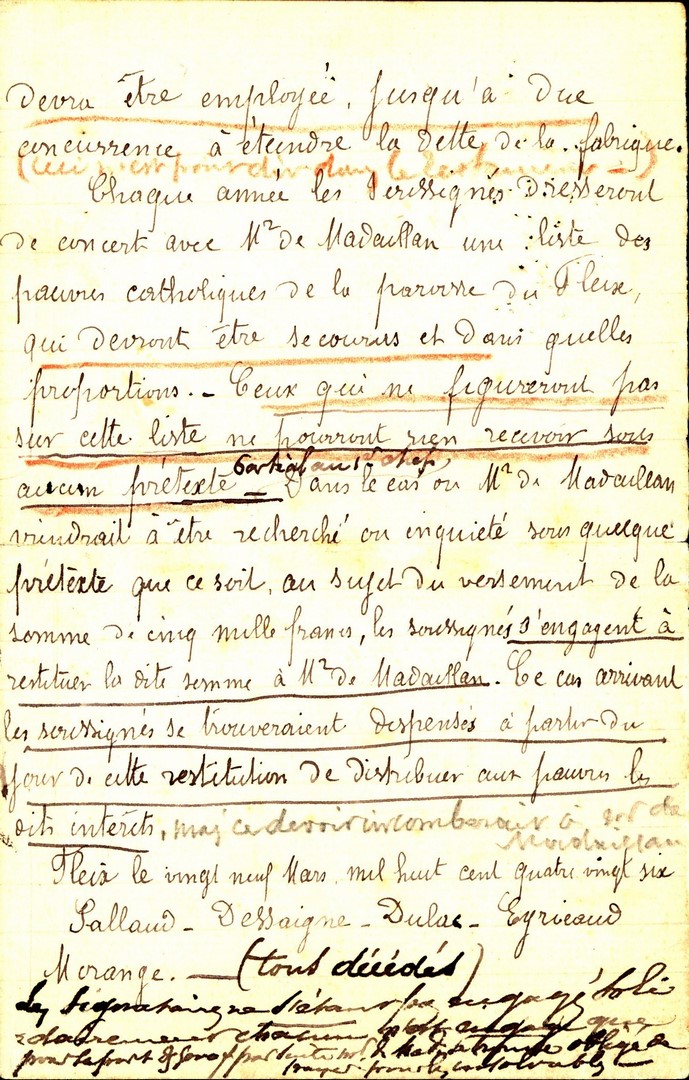 devra être employée, jusqu'à due
concurrence à éteindre la dette de la fabrique.
(Ceci n'est point dit dans le testament —)
Chaque année les soussignés dresseront
de concert avec Mr de Madaillan une liste des
pauvres catholiques de la paroisse du Fleix,
qui devront être secourus et dans quelles
proportions. — Ceux qui ne figureront pas
sur cette liste ne pourront rien recevoir sous
aucun prétexte — Dans le cas où Mr de Madaillan
viendrait à être recherché ou inquiété sous quelque
prétexte que ce soit, au sujet du versement de la
somme de cinq mille francs, les soussignés s'engagent à
restituer la dite somme à Mr de Madaillan. Ce cas arrivant
les soussignés se trouveraient dispensés à partir du
jour de cette restitution de distribuer aux pauvres les
dits intérêts, mais ce devoir incomberait à Mr de
Madaillan
Fleix le vingt neuf Mars mil huit cent quatre vingt six
Sallaud - Dessaigne - Dulac - Eyricaud
Morange. — (tous décédés)
Les signataires ne s'étant pas engagés soli
dairement chacun n'est engagé que
pour sa part